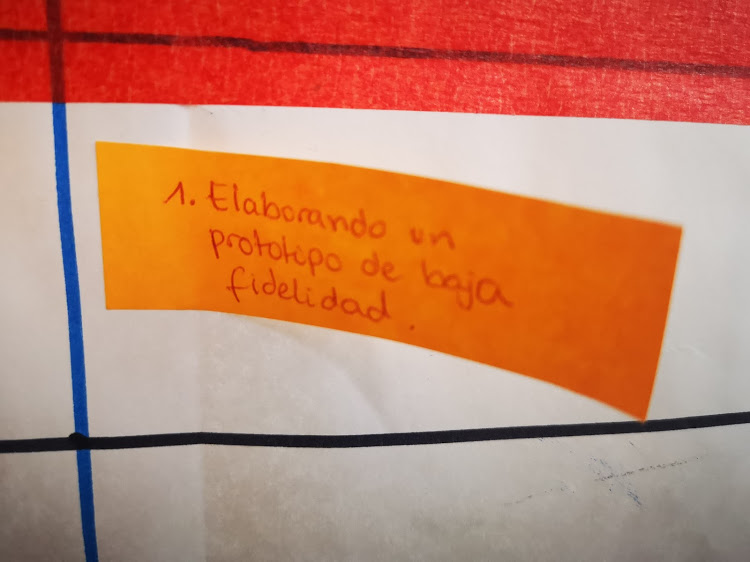 1. Elaborando un
prototipo de baja
fidelidad.